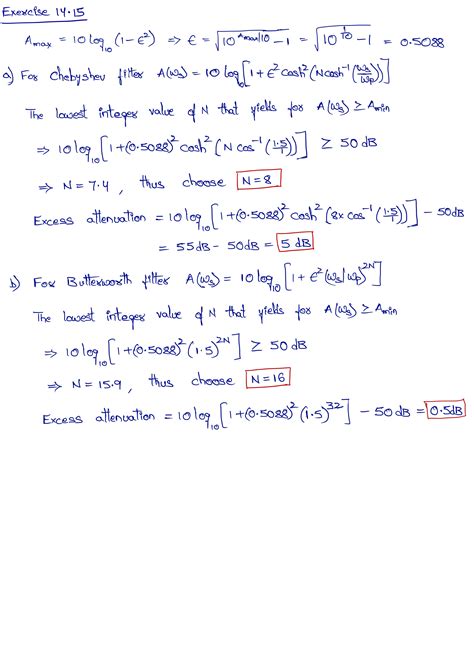 Exercise 14.15
Amax = 10 log₁₀ (1-ϵ²) ⇒ ϵ = √(10^(Amax/10) - 1) = √(10^(1/10) - 1) = 0.5088
a) For Chebyshev filter A(ωs) = 10 log₁₀[1 + ϵ² cosh² (N cosh⁻¹ (ωs/ωp))]
The lowest integer value of N that yields for A(ωs) ≥ Amin
⇒ 10 log₁₀ [1+(0.5088)² cosh² (N cos⁻¹ (1.5/1))] ≥ 50 dB
⇒ N = 7.4 , thus choose N = 8
Excess attenuation = 10 log₁₀ [1+(0.5088)² cosh² (8x cos⁻¹ (1.5/1))] - 50dB
= 55dB - 50dB = 5 dB
b) For Butterworth filter A(ωs) = 10 log₁₀ [1 + ϵ² (ωs/ωp)^2N]
The lowest integer value of N that yields for A(ωs) ≥ Amin
⇒ 10 log₁₀ [1+(0.5088)² (1.5)^2N] ≥ 50 dB
⇒ N = 15.9 , thus choose N = 16
Excess attenuation = 10 log₁₀ [1+(0.5088)² (1.5)^32] - 50 dB = 0.5dB